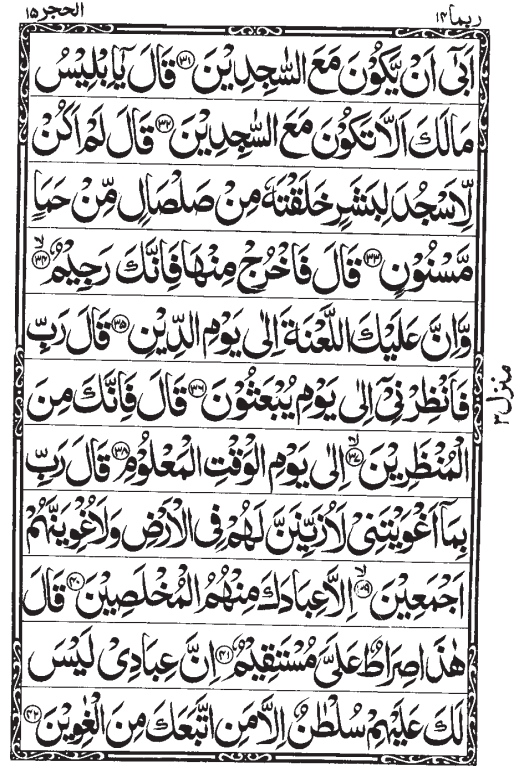 ربما ١٤
الحجر ١٥
اَبٰۤى اَنْ يَّكُوْنَ مَعَ السّٰجِدِيْنَ ﴿٣١﴾ قَالَ يٰۤاِبْلِيْسُ
مَالَكَ اَلَّا تَكُوْنَ مَعَ السّٰجِدِيْنَ ﴿٣٢﴾ قَالَ لَمْ اَكُنْ
لِّاَسْجُدَ لِبَشَرٍ خَلَقْتَهٗ مِنْ صَلْصَالٍ مِّنْ حَمَاٍ
مَّسْنُوْنٍ ﴿٣٣﴾ قَالَ فَاخْرُجْ مِنْهَا فَاِنَّكَ رَجِيْمٌ ۙ﴿٣٤﴾
وَّاِنَّ عَلَيْكَ اللَّعْنَةَ اِلٰى يَوْمِ الدِّيْنِ ﴿٣٥﴾ قَالَ رَبِّ
فَاَنْظِرْنِيْۤ اِلٰى يَوْمِ يُبْعَثُوْنَ ﴿٣٦﴾ قَالَ فَاِنَّكَ مِنَ
الْمُنْظَرِيْنَ ۙ﴿٣٧﴾ اِلٰى يَوْمِ الْوَقْتِ الْمَعْلُوْمِ ﴿٣٨﴾ قَالَ رَبِّ
بِمَاۤ اَغْوَيْتَنِيْ لَاُزَيِّنَنَّ لَهُمْ فِى الْاَرْضِ وَلَاُغْوِيَنَّهُمْ
اَجْمَعِيْنَ ۙ﴿٣٩﴾ اِلَّا عِبَادَكَ مِنْهُمُ الْمُخْلَصِيْنَ ﴿٤٠﴾ قَالَ
هٰذَا صِرَاطٌ عَلَيَّ مُسْتَقِيْمٌ ﴿٤١﴾ اِنَّ عِبَادِيْ لَيْسَ
لَكَ عَلَيْهِمْ سُلْطٰنٌ اِلَّا مَنِ اتَّبَعَكَ مِنَ الْغٰوِيْنَ ﴿٤٢﴾
منزل ٣